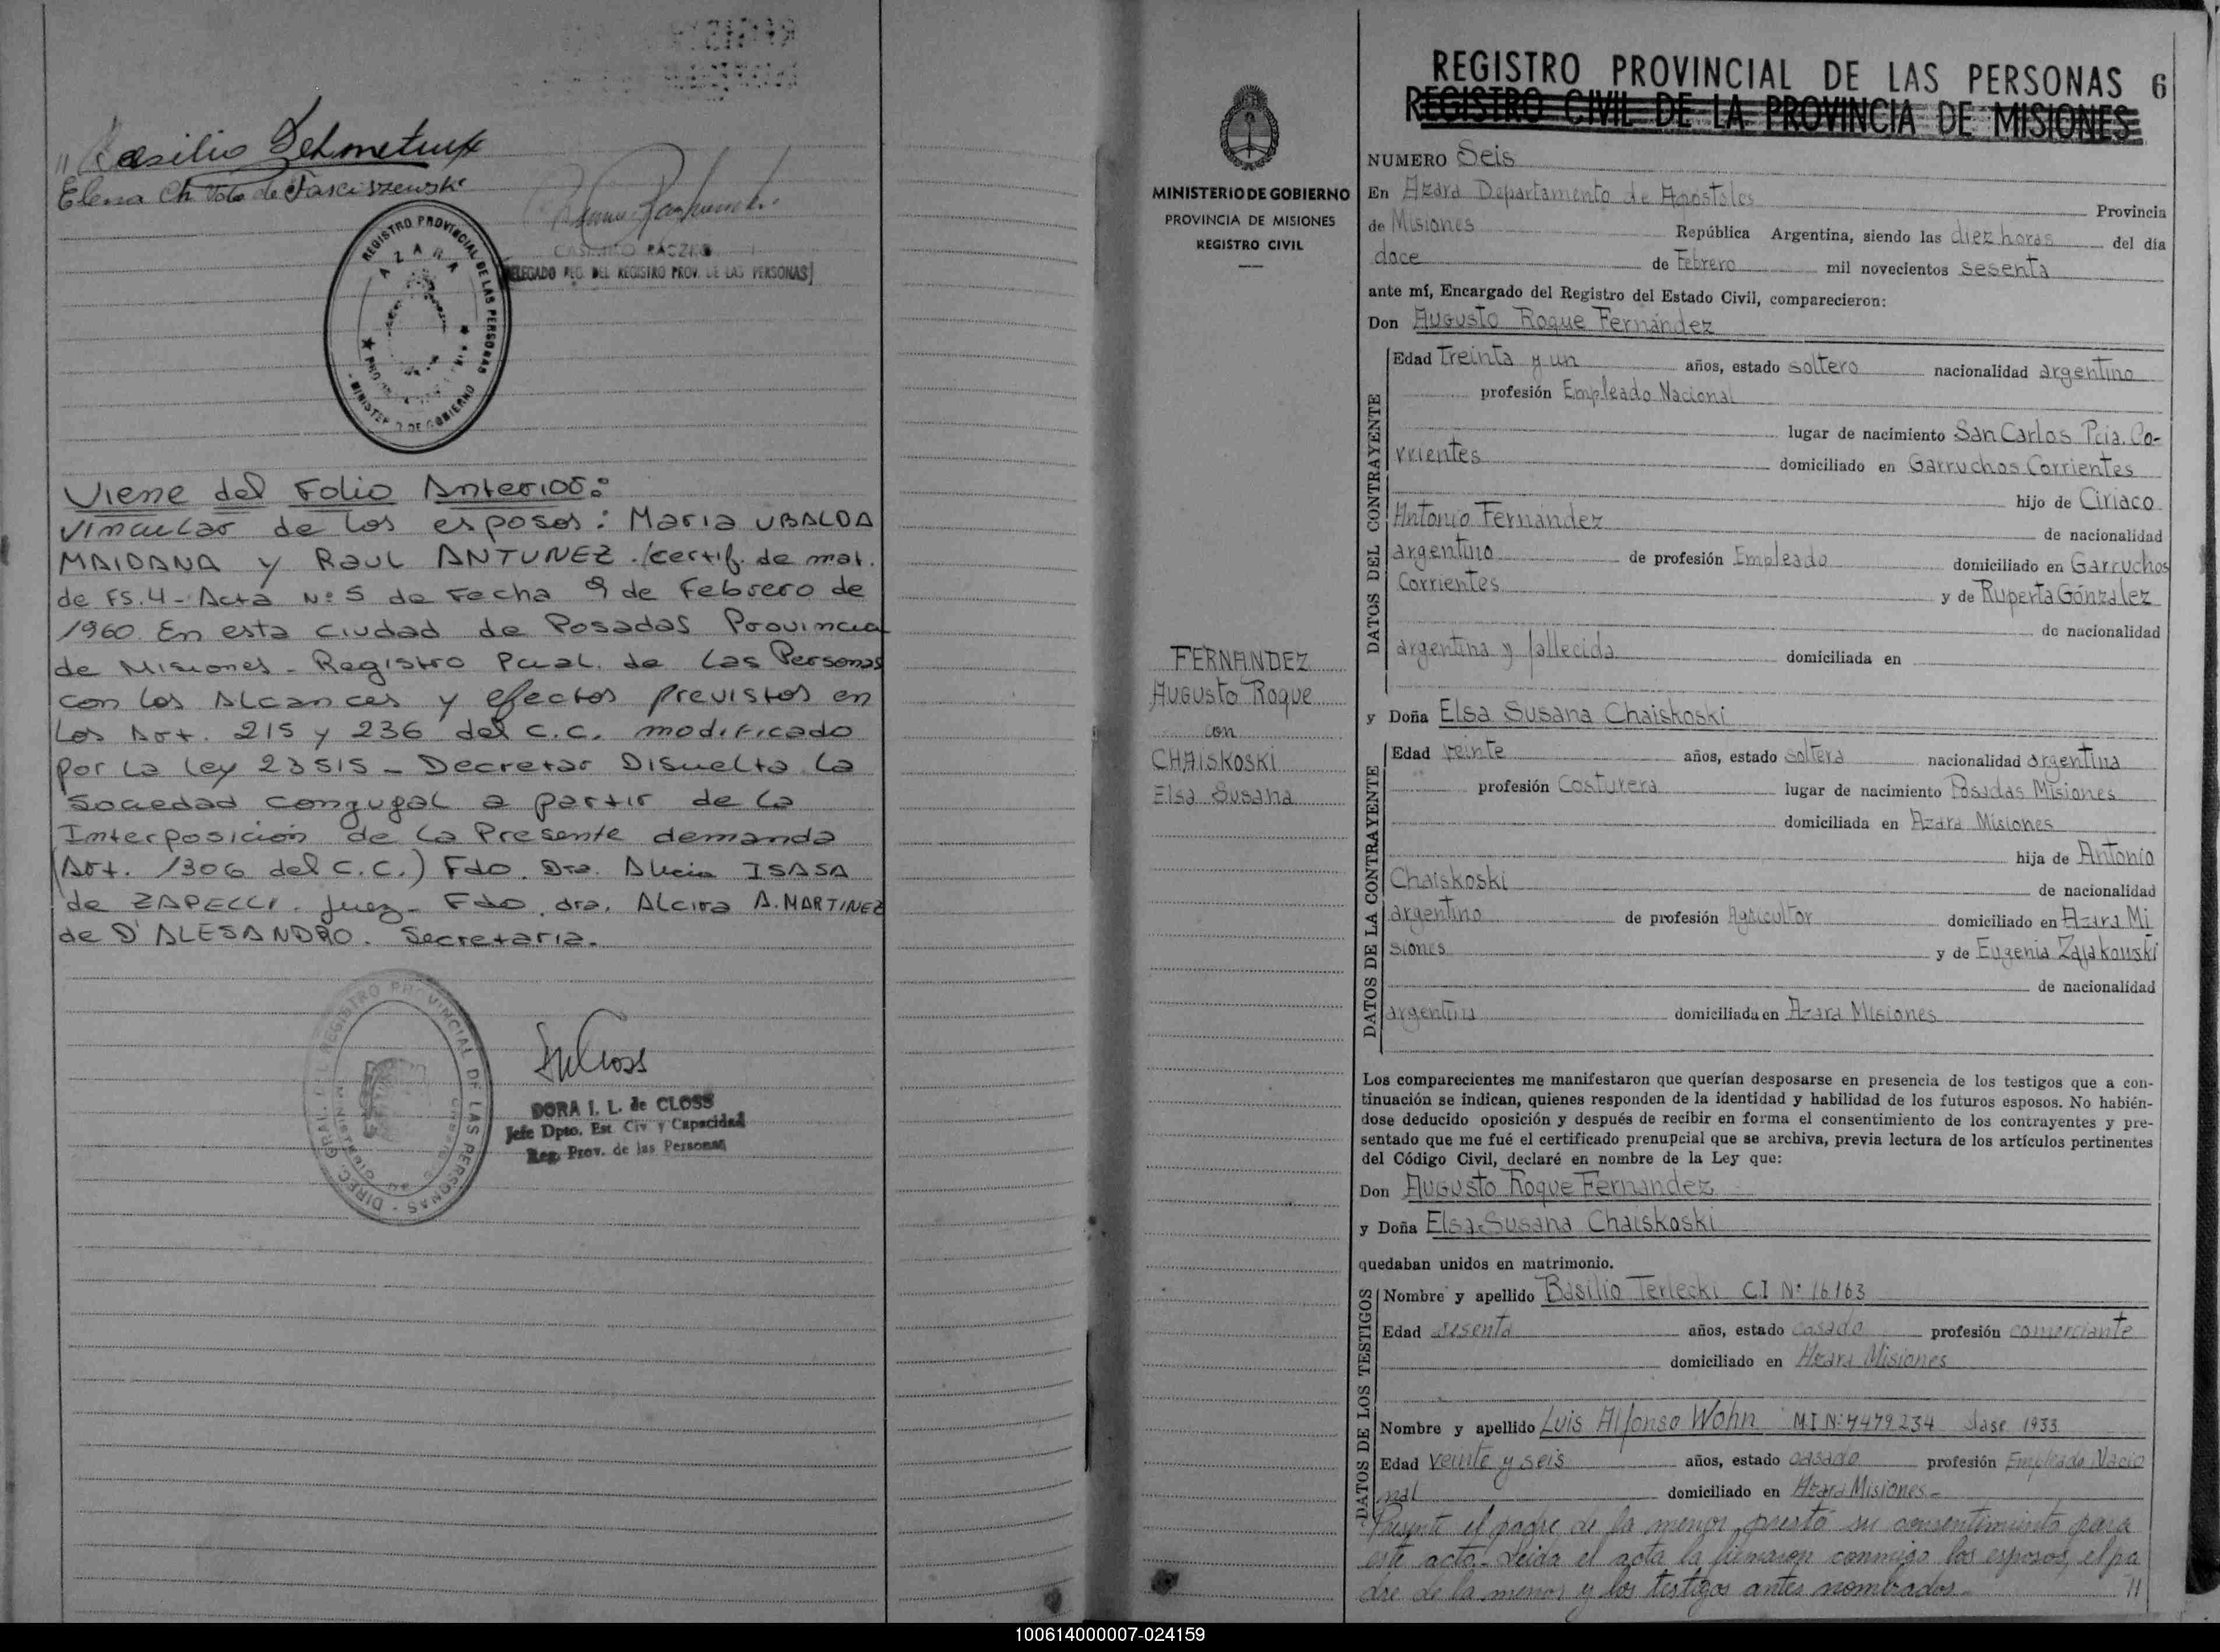 Basilio
Elena Ch Vda de
CASIMIRO PACZKO
DELEGADO REG. DEL REGISTRO PROV. DE LAS PERSONAS
REGISTRO PROVINCIAL DE LAS PERSONAS
AZARA
MINISTERIO DE GOBIERNO
Viene del Folio Anterior:
Vincular de los esposos: Maria UBALDA
MAIDANA y Raul ANTUNEZ./certif. de mat.
de FS. 4 - Acta Nº 5 de Fecha 9 de Febrero de
1960. En esta Ciudad de Posadas Provincia
de Misiones - Registro Pcial. de las Personas
con los Alcances y efectos previstos en
Los Art. 215 y 236 del C.C. modificado
por La Ley 23515 - Decretar Disuelta La
Sociedad conyugal a partir de la
Interposición de la Presente demanda
(Art. 1306 del C.C.) Fdo. Dra. Alicia ISASA
de ZAPELLI. Juez - Fdo. dra. Alcira A. MARTINEZ
de D'ALESANDRO. Secretaria.
REGISTRO PROVINCIAL DE LAS PERSONAS - DIREC. GRAL.
DORA I. L. de CLOSS
Jefe Dpto. Est. Civ y Capacidad
Reg. Prov. de las Personas
MINISTERIO DE GOBIERNO
PROVINCIA DE MISIONES
REGISTRO CIVIL
FERNANDEZ
Augusto Roque
con
CHAISKOSKI
Elsa Susana
REGISTRO PROVINCIAL DE LAS PERSONAS 6
REGISTRO CIVIL DE LA PROVINCIA DE MISIONES
NUMERO Seis
En Azara Departamento de Apostoles Provincia
de Misiones República Argentina, siendo las diez horas del día
doce de Febrero mil novecientos sesenta
ante mí, Encargado del Registro del Estado Civil, comparecieron:
Don Augusto Roque Fernández
DATOS DEL CONTRAYENTE
Edad Treinta y un años, estado soltero nacionalidad argentino
profesión Empleado Nacional
lugar de nacimiento San Carlos Pcia. Co-
rrientes domiciliado en Garruchos Corrientes
hijo de Ciriaco
Antonio Fernández de nacionalidad
argentino de profesión Empleado domiciliado en Garruchos
Corrientes y de Ruperta Gónzalez
de nacionalidad
argentina y fallecida domiciliada en
y Doña Elsa Susana Chaiskoski
DATOS DE LA CONTRAYENTE
Edad veinte años, estado soltera nacionalidad argentina
profesión Costurera lugar de nacimiento Posadas Misiones
domiciliada en Azara Misiones
hija de Antonio
Chaiskoski de nacionalidad
argentino de profesión Agricultor domiciliado en Azara Mi
siones y de Eugenia Zajakouski
de nacionalidad
argentina domiciliada en Azara Misiones
Los comparecientes me manifestaron que querían desposarse en presencia de los testigos que a con-
tinuación se indican, quienes responden de la identidad y habilidad de los futuros esposos. No habién-
dose deducido oposición y después de recibir en forma el consentimiento de los contrayentes y pre-
sentado que me fué el certificado prenupcial que se archiva, previa lectura de los artículos pertinentes
del Código Civil, declaré en nombre de la Ley que:
Don Augusto Roque Fernandez
y Doña Elsa Susana Chaiskoski
quedaban unidos en matrimonio.
DATOS DE LOS TESTIGOS
Nombre y apellido Basilio Terlecki C.I Nº 16163
Edad sesenta años, estado casado profesión comerciante
domiciliado en Azara Misiones
Nombre y apellido Luis Alfonso Wohn M.I Nº 7479234 clase 1933
Edad veinte y seis años, estado casado profesión Empleado Nacio
nal domiciliado en Azara Misiones -
Presente el padre de la menor prestó su consentimiento para
este acto. Leida el acta la firmaron conmigo los esposos, el pa
dre de la menor y los testigos antes nombrados - //
100614000007-024159